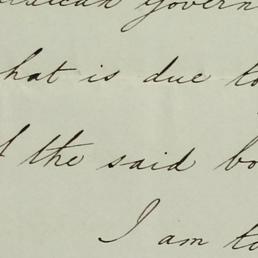 govern
hat is due to
the said bo
I am to